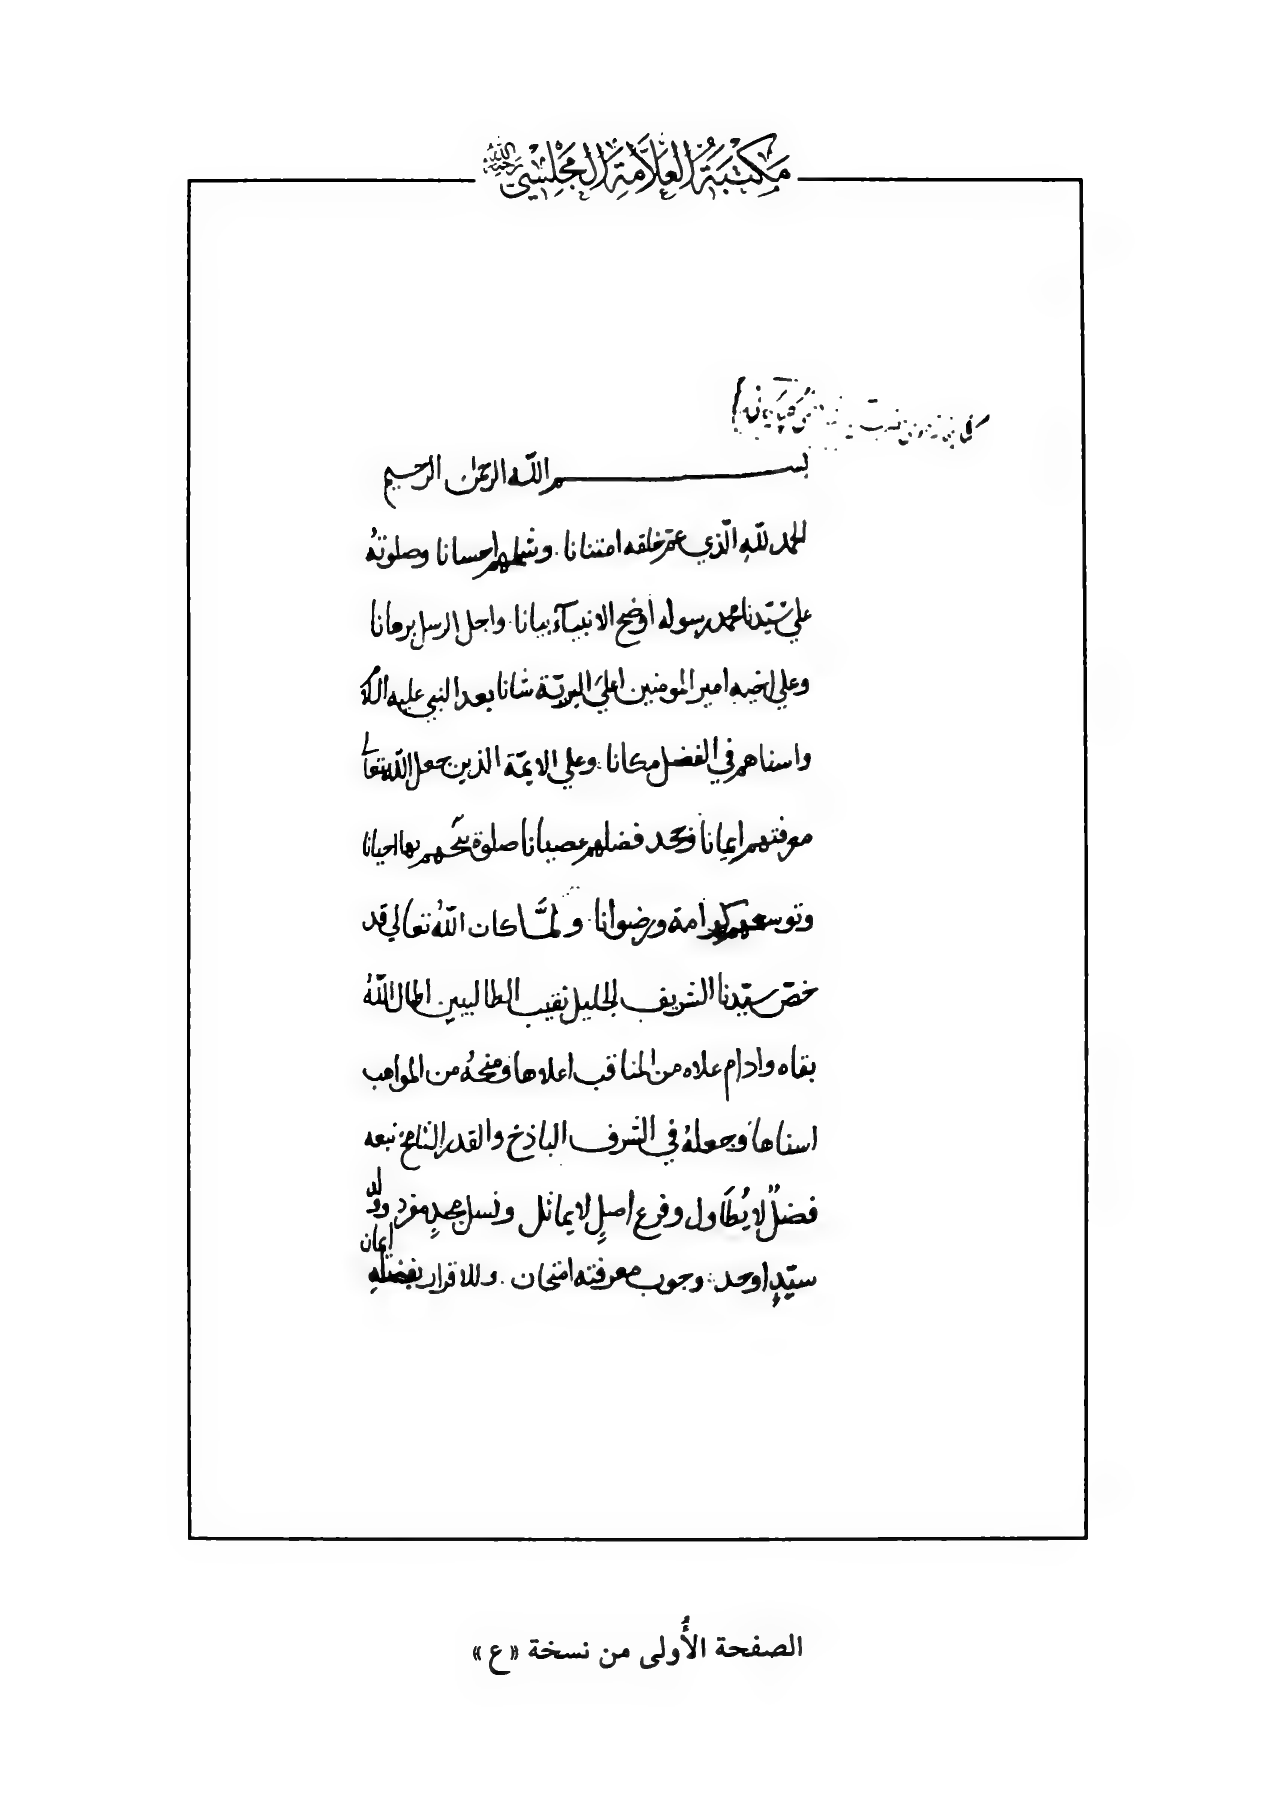 مكتبة العلامة المجلسي رحمه الله
بسم الله الرحمن الرحيم
الحمد لله الذي عم خلقه امتنانا وشملهم احسانا وصلوته
علي سيدنا محمد رسوله اوضح الانبياء بيانا واجل الرسل برهانا
وعلي اخيه امير المومنين اعلي البرية شانا بعد النبي عليه
واسناهم في الفضل مكانا وعلي الايمة الذين جعل الله تعالي
معرفتهم ايمانا وجحد فضلهم عصيانا صلوة بها احيانا
وتوسعهم كرامة ورضوانا ولما كان الله تعالي قد
خص سيدنا الشريف الجليل نقيب الطالبيين اطال الله
بقاه وادام علاه من المناقب اعلاها ومنحه من المواهب
اسناها وجعله في الشرف الباذخ والقدر الشامخ نبعه
فضل لا يطاول وفرع اصل لا يماثل ونسل مجد مفرد وولد
سيد اوحد وجوب معرفته امتحان وللاقرار بفضله ايمان
الصفحة الأولى من نسخة «ع»